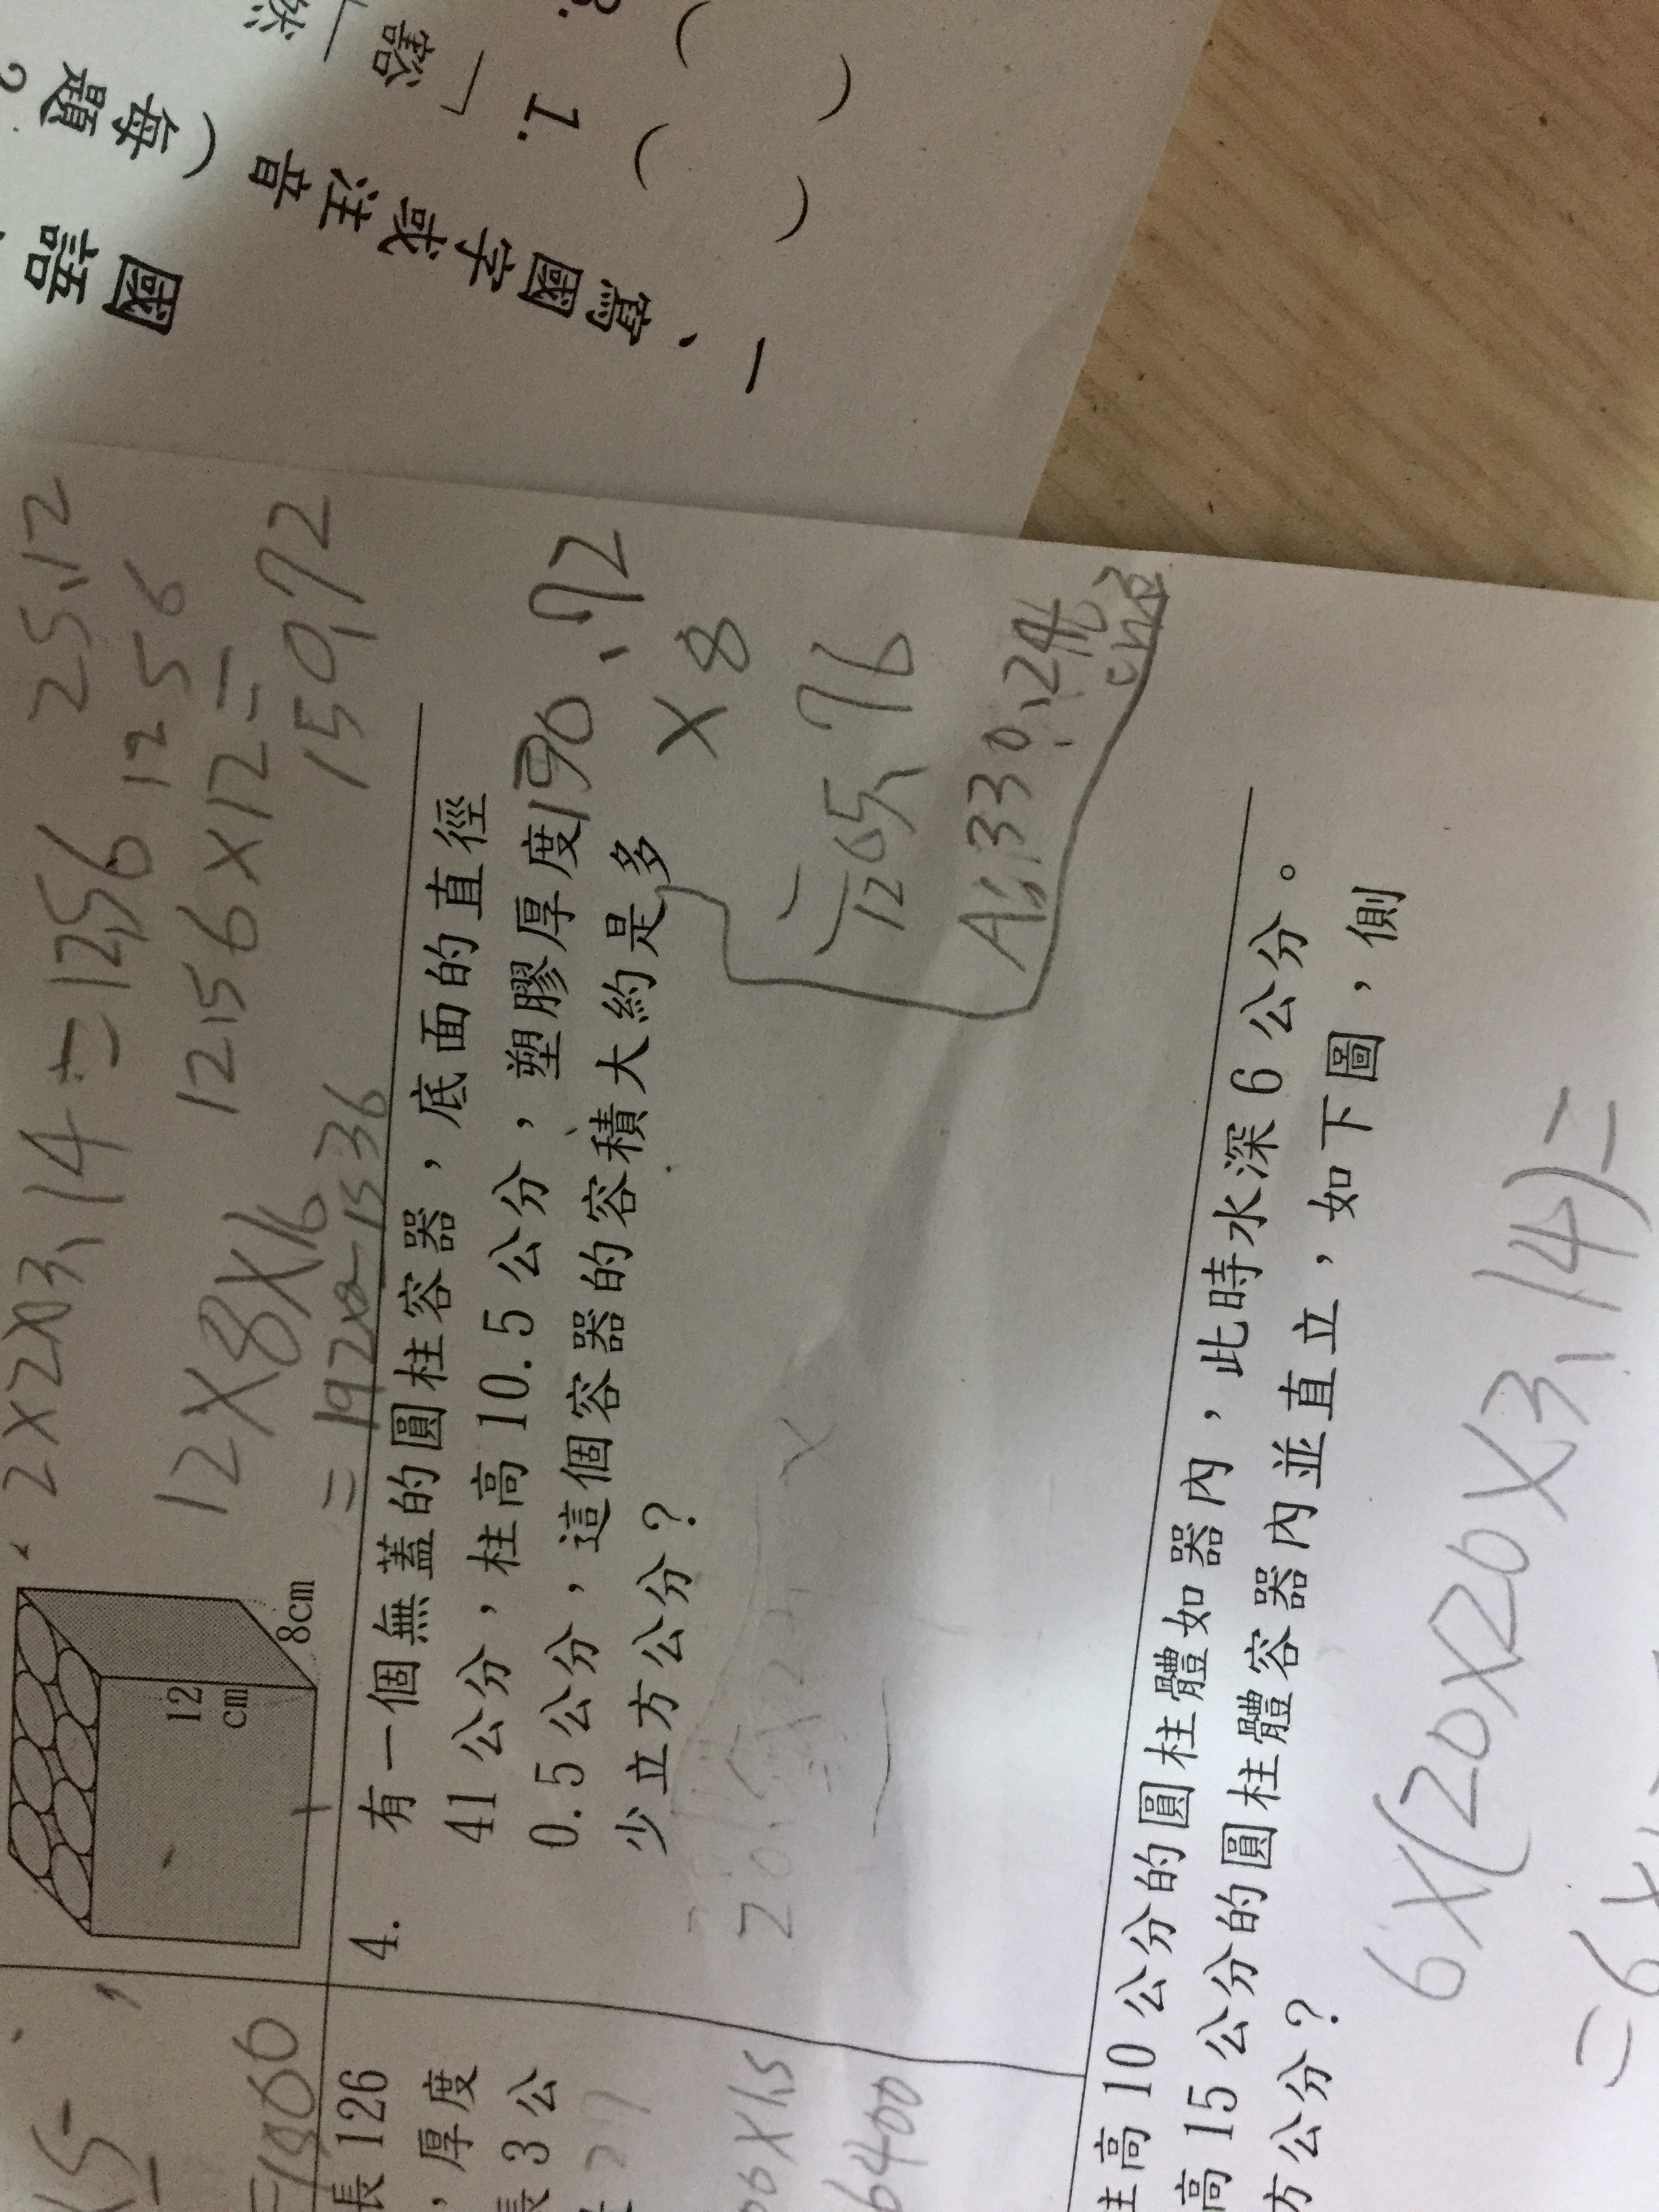 國語
一、寫國字或注音（每題2
1.
「豁
2×2×3.14=12.56
25.12
12.56
12.56×12=
150.72
12×8×16
=1920-1536
12
cm
8cm
4.
有一個無蓋的圓柱容器，底面的直徑
41公分，柱高10.5公分，塑膠厚度
0.5公分，這個容器的容積大約是多
少立方公分？
150.72
×8
1205.76
A:330.24
cm³
長126
，厚度
長3公
6400
柱高10公分的圓柱體如器內，此時水深6公分。
高15公分的圓柱體容器內並直立，如下圖，側
方公分？
6×(20×20×3.14)=
=6×